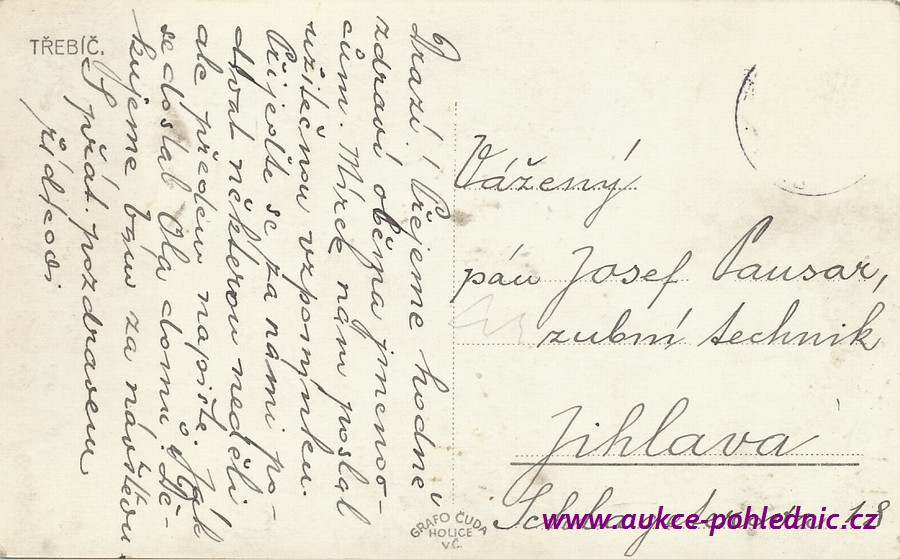 TŘEBÍČ.
Drazí! Přejeme hodně
zdraví oběma jmeno-
cům. Mirek nám poslal
užitečnou vzpomínku.
Přijeďte se za námi po-
dívat některou neděli
ale předem napište. Jak
se dostal Ola domů? Dě-
kujeme Vám za návštěvu
S přát. pozdravem
Vážený
pán Josef Pausar,
zubní technik
Jihlava
18
GRAFO ČUDA
HOLICE
V Č.
www.aukce-pohlednic.cz